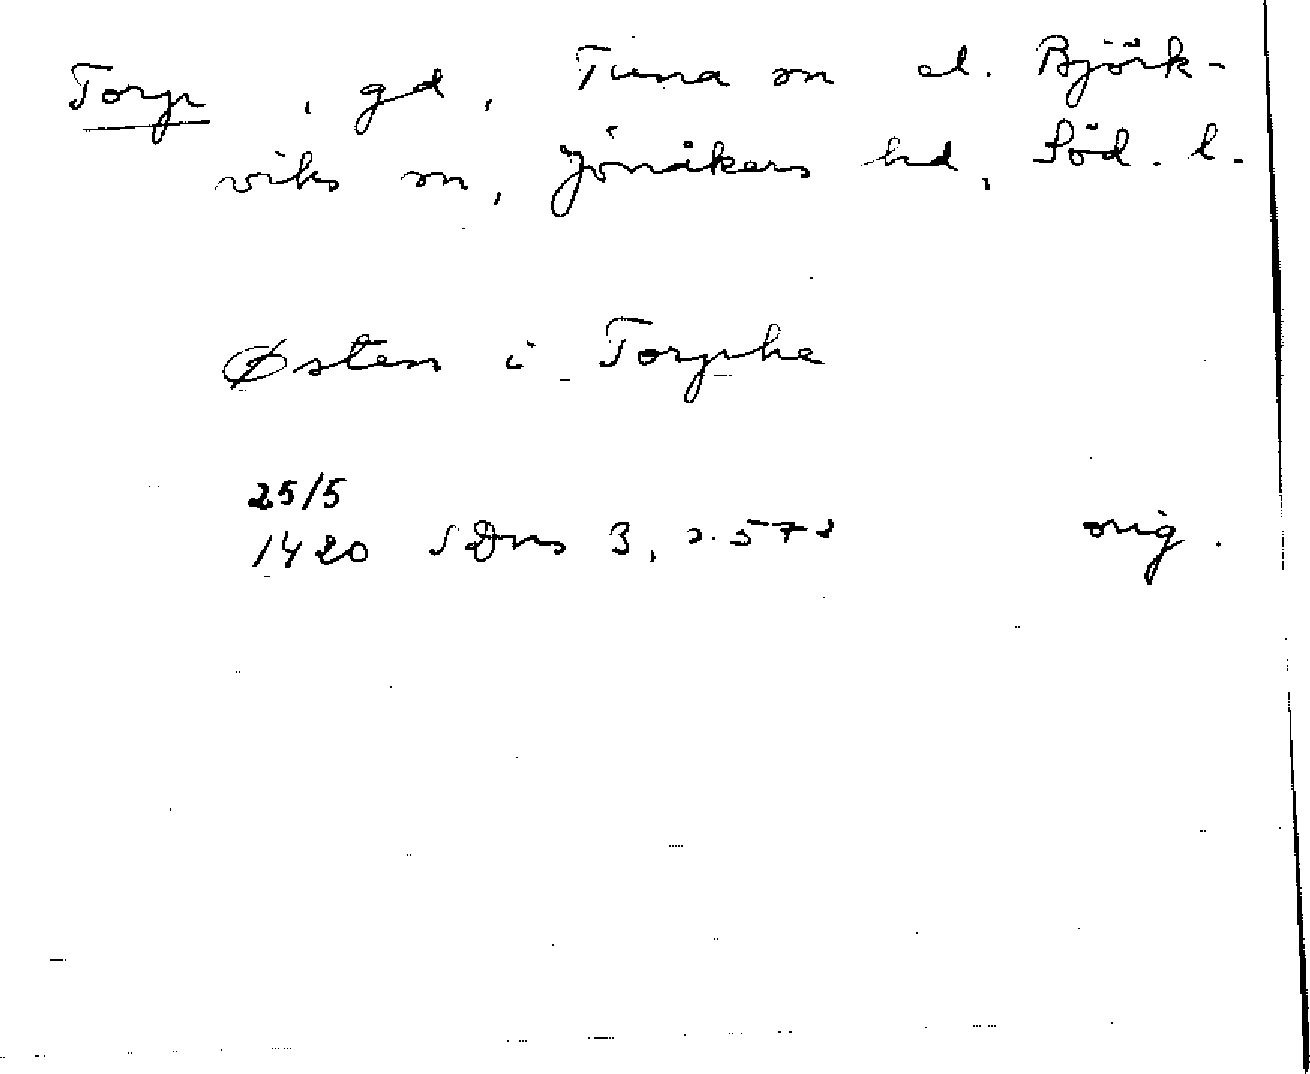 Torp, gd, Tuna sn el. Björk-
viks sn, Jönåkers hd, Söd. l.
Østen i Torphe
25/5
1420 SDns 3, s. 572 orig.